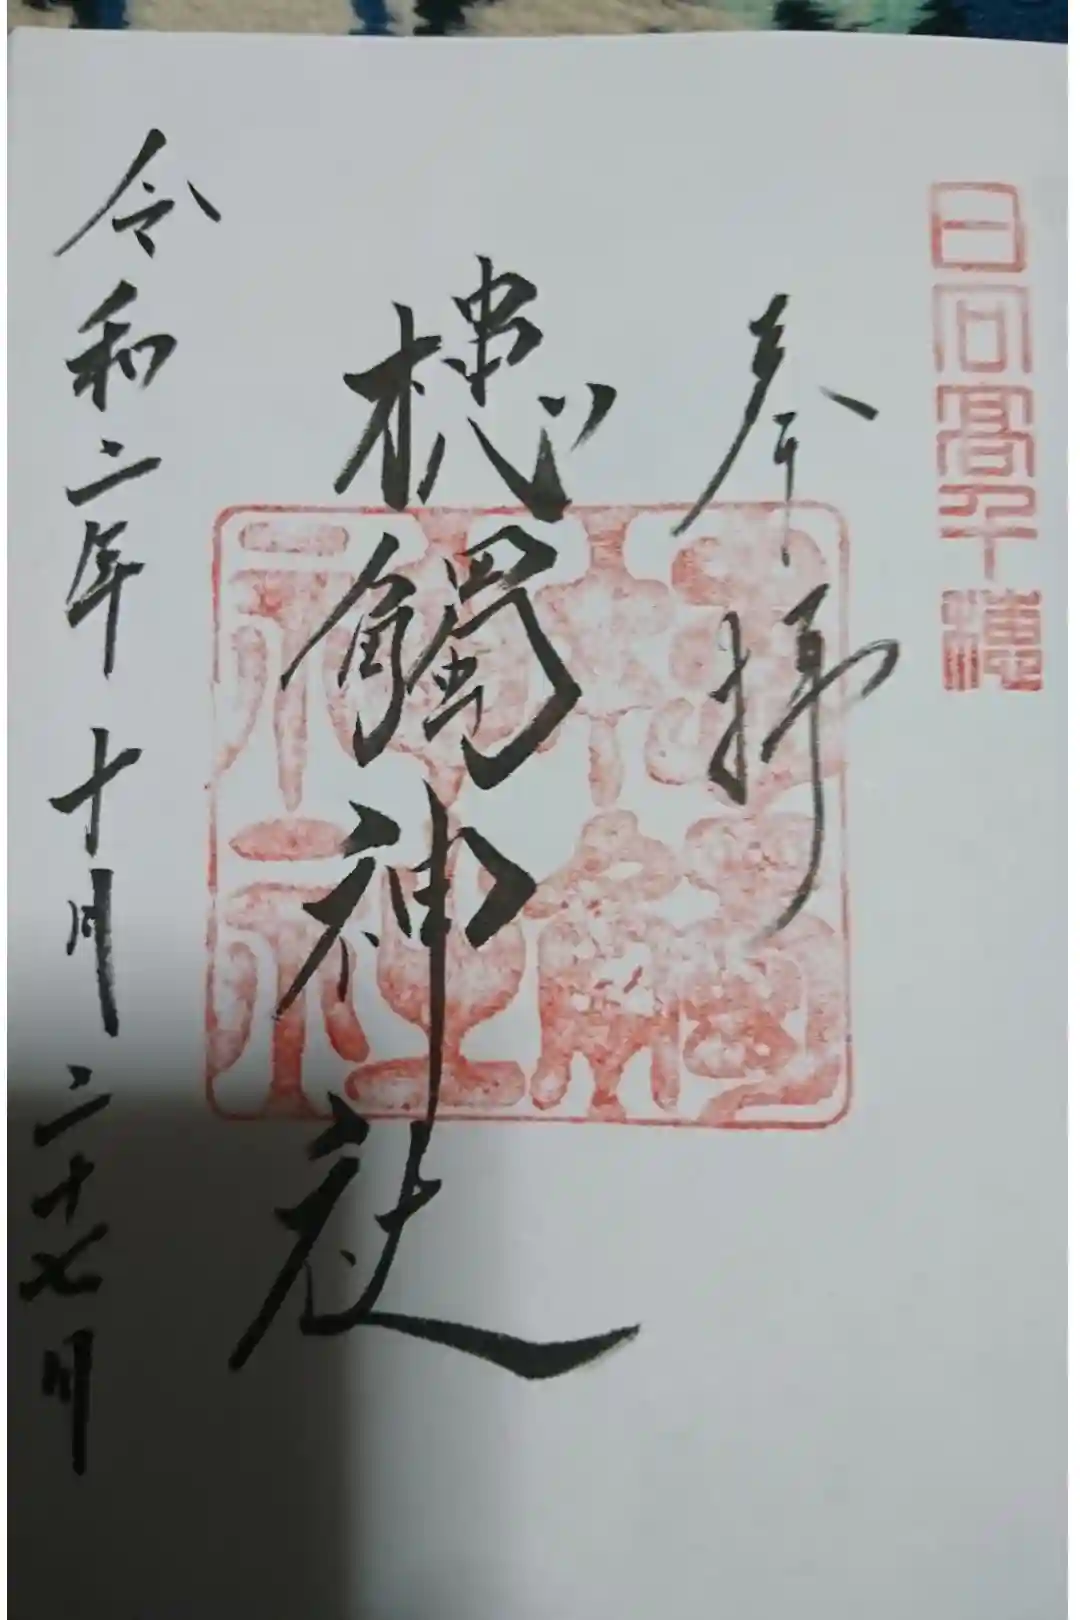 日向高千穂
奉拝
槵觸神社
令和二年十月二十七日
槵觸神社